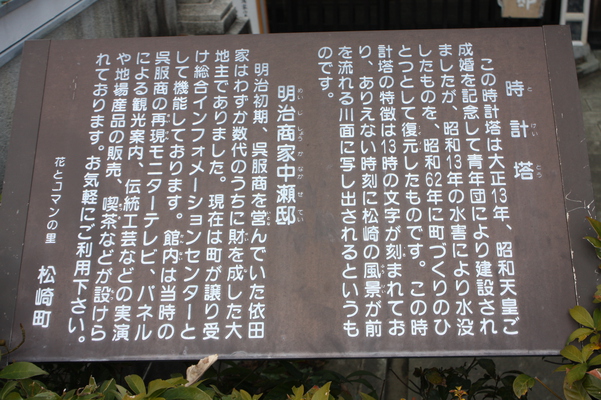 時計塔
とけいとう
この時計塔は大正13年、昭和天皇ご
成婚を記念して青年団により建設され
ましたが、昭和13年の水害により水没
したものを、昭和62年に町づくりのひ
とつとして復元したものです。この時
計塔の特徴は13時の文字が刻まれてお
り、ありえない時刻に松崎の風景が前
を流れる川面に写し出されるというも
のです。
明治商家中瀬邸
めいじしょうかなかぜてい
明治初期、呉服商を営んでいた依田
家はわずか数代のうちに財を成した大
地主でありました。現在は町が譲り受
け総合インフォメーションセンターと
して機能しております。館内は当時の
呉服商の再現モニターテレビ、パネル
による観光案内、伝統工芸などの実演
や地場産品の販売、喫茶などが設けら
れております。お気軽にご利用下さい。
花とロマンの里 松崎町